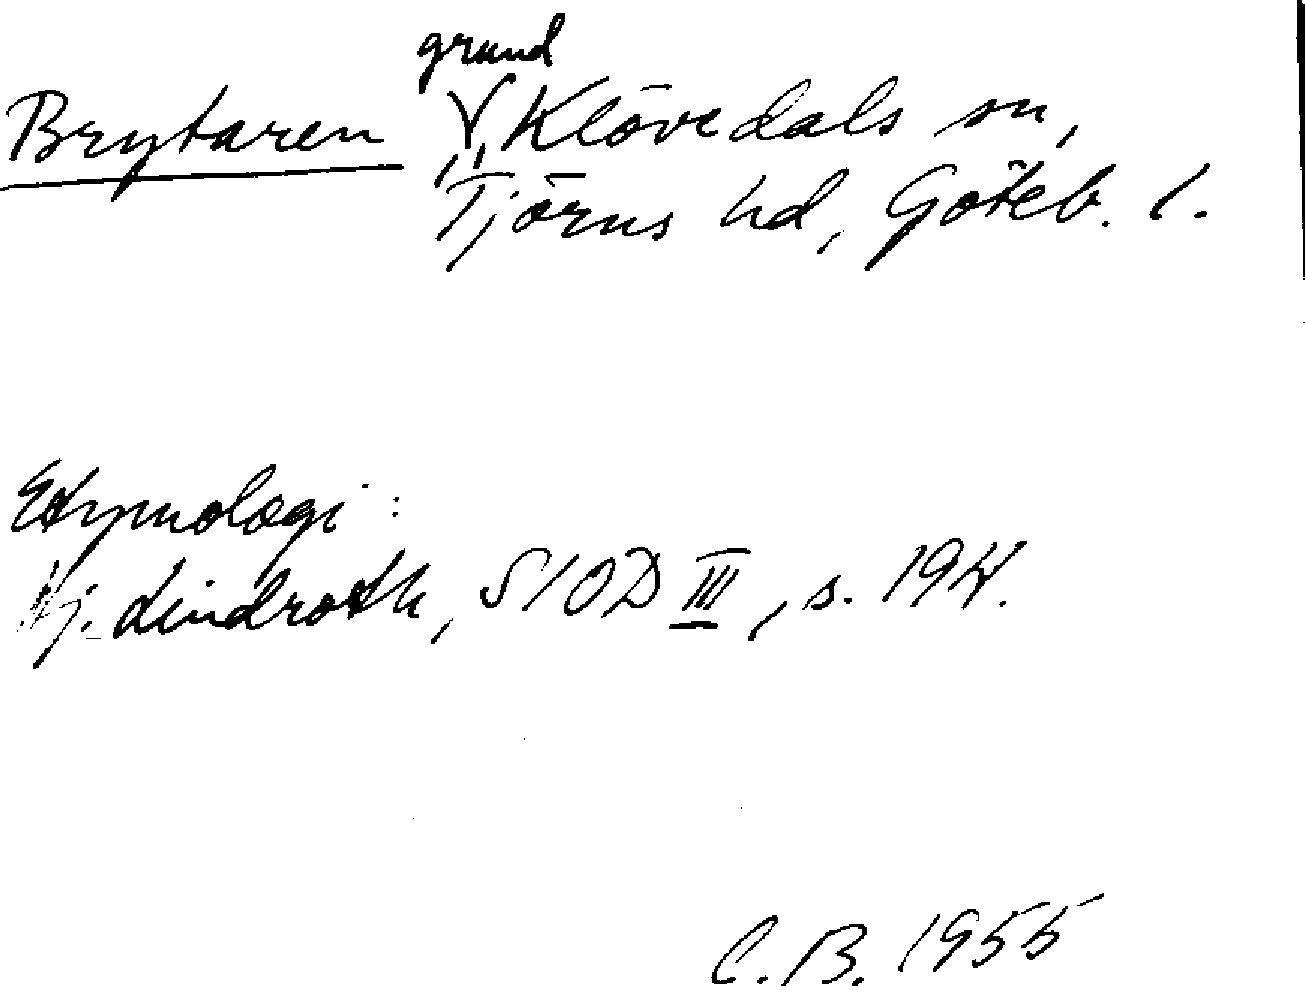 grund
Brytaren Klövedals sn,
Tjörns hd, Göteb. l.
Etymologi:
Hj. Lindroth, SIOD III, s. 194.
C.B. 1955